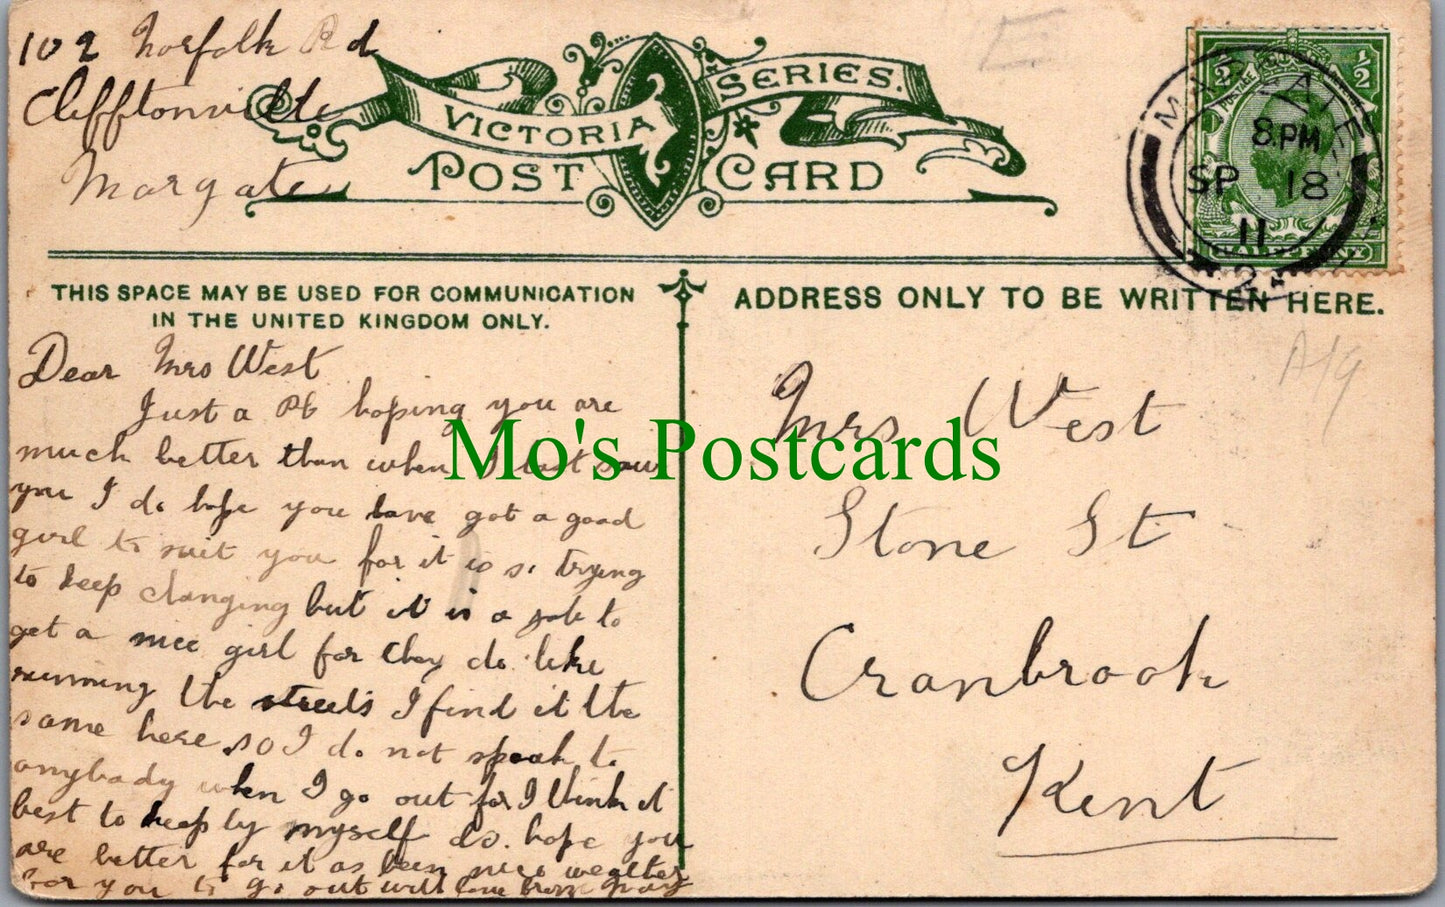 102 Norfolk Rd
Clifftonville
Margate
VICTORIA SERIES.
POST CARD
MARGATE
8 PM
SP 18
11
THIS SPACE MAY BE USED FOR COMMUNICATION
IN THE UNITED KINGDOM ONLY.
ADDRESS ONLY TO BE WRITTEN HERE.
Dear Mrs West
Just a Pc hoping you are
much better than when I last saw
you I do hope you have got a good
girl to suit you for it is so trying
to keep changing but it is a job to
get a nice girl for they do like
running the streets I find it the
same here so I do not speak to
anybody when I go out for I think it
best to keep by myself do hope you
are better for it as been nice weather
for you to go out with love from
Mrs West
Stone St
Cranbrook
Kent
A/9
Mo's Postcards